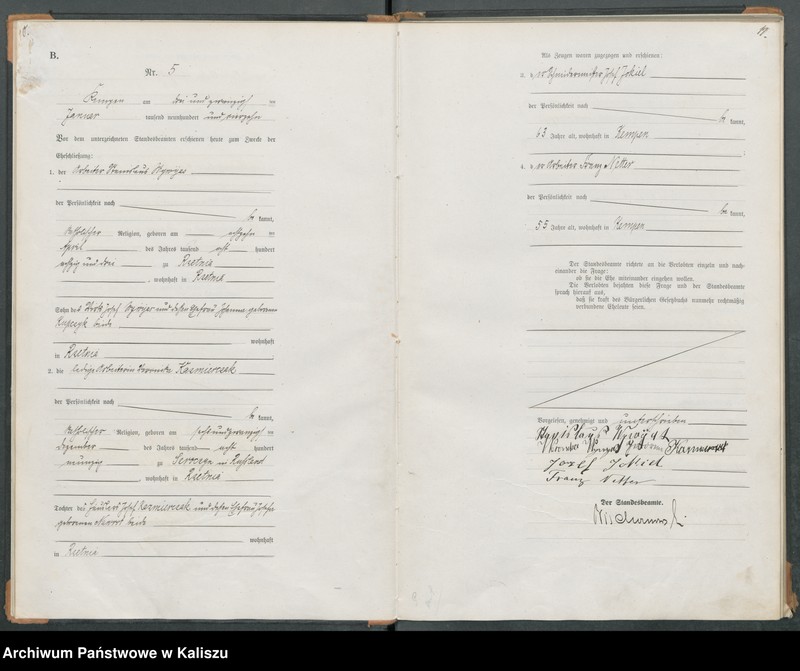 B.
Nr. 5
Kempen am drei und zwanzigsten
Januar tausend neunhundert und vierzehn
Vor dem unterzeichneten Standesbeamten erschienen heute zum Zwecke der
Eheschließung:
1. der Arbeiter Stanislaus
der Persönlichkeit nach
be kannt,
katholischer Religion, geboren am achtzehnten
April des Jahres tausend acht hundert
achtzig und drei zu Rzetnia
, wohnhaft in Rzetnia
Sohn des Josef und dessen Ehefrau geborenen
beide
wohnhaft
in Rzetnia
2. die ledige Arbeiterin Veronika Kazmierczak
der Persönlichkeit nach
be kannt,
katholischer Religion, geboren am sechsundzwanzigsten
Dezember des Jahres tausend acht hundert
neunzig zu in Rußland
, wohnhaft in Rzetnia
Tochter des Häuslers Josef Kazmierczak und dessen Ehefrau
geborenen beide
wohnhaft
in Rzetnia
17.
Als Zeugen waren zugezogen und erschienen:
3. der Schneidermeister Josef Jokiel
der Persönlichkeit nach
be kannt,
63 Jahre alt, wohnhaft in Kempen
4. der Arbeiter Franz Netter
der Persönlichkeit nach
be kannt,
55 Jahre alt, wohnhaft in Kempen
Der Standesbeamte richtete an die Verlobten einzeln und nach-
einander die Frage:
ob sie die Ehe miteinander eingehen wollen.
Die Verlobten bejahten diese Frage und der Standesbeamte
sprach hierauf aus,
daß sie kraft des Bürgerlichen Gesetzbuchs nunmehr rechtmäßig
verbundene Eheleute seien.
Vorgelesen, genehmigt und unterschrieben
Józef Jokiel
Franz Netter
Der Standesbeamte.
Archiwum Państwowe w Kaliszu